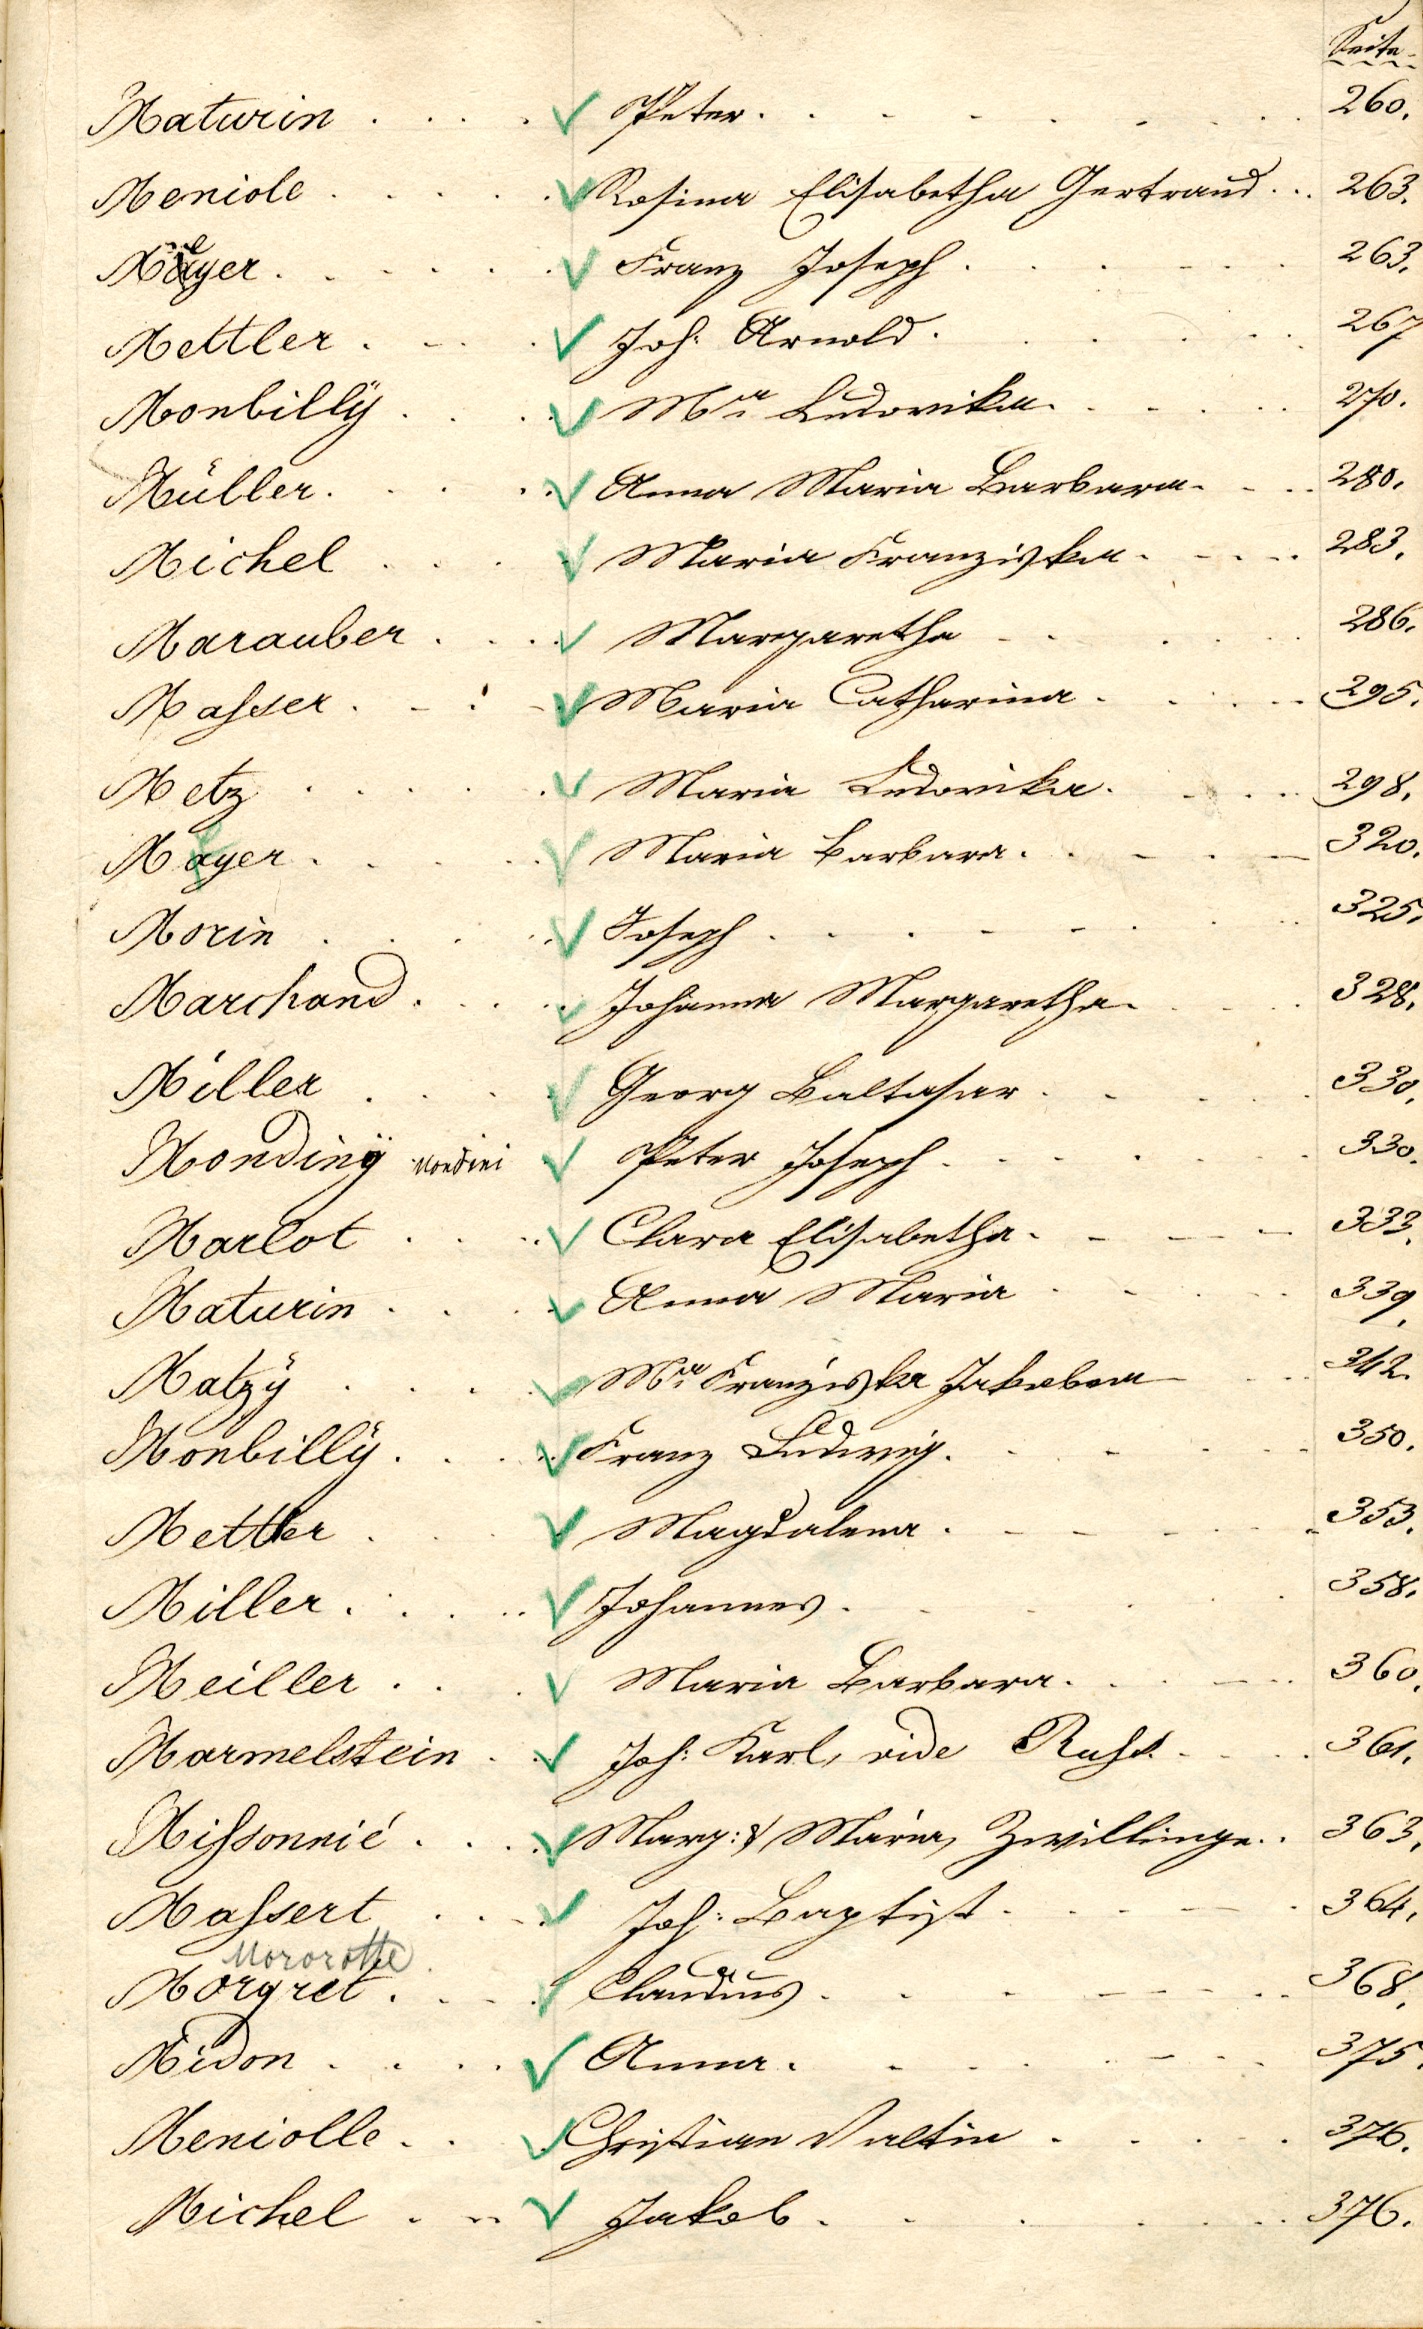 Seite
Maturin . . . . Peter . . . . 260.
Meniole . . . . Rosina Elisabetha Gertraud . . 263.
Mayer . . . . Franz Joseph . . . . 263.
Mettler . . . . Joh: Arnold . . . . 267
Monbillÿ . . . . Mᵃ Ludovika . . . . 270.
Müller . . . . Anna Maria Barbara . . . . 280.
Michel . . . . Maria Franziska . . . . 283.
Marauber . . . . Margaretha . . . . 286.
Maſser . . . . Maria Catharina . . . . 295.
Metz . . . . Maria Ludovika . . . . 298.
Mayer . . . . Maria Barbara . . . . 320.
Morin . . . . Joseph . . . . 325.
Marchand . . . . Johanna Margaretha . . . . 328.
Miller . . . . Georg Baltasar . . . . 330.
Mondinÿ Mondini Peter Joseph . . . . 330.
Marlot . . . . Clara Elisabetha . . . . 333.
Maturin . . . . Anna Maria . . . . 339.
Matzÿ . . . . Mᵃ Franziska Jakobea . . 342.
Monbillÿ . . . . Franz Ludwig . . . . 350.
Mettler . . . . Magdalena . . . . 353.
Miller . . . . Johannes . . . . 358.
Meiller . . . . Maria Barbara . . . . 360.
Marmelstein . . Joh: Karl, vide . . . . 361.
Miſsonnié . . . . Marg: & Maria, Zwillinge . . 363.
Maſsert . . . . Joh: Baptist . . . . 364.
Mororotte
Morgret . . . . Claudius . . . . 368.
Midon . . . . Anna . . . . 375.
Meniolle . . . . Christian Valtin . . . . 376.
Michel . . . . Jakob . . . . 376.